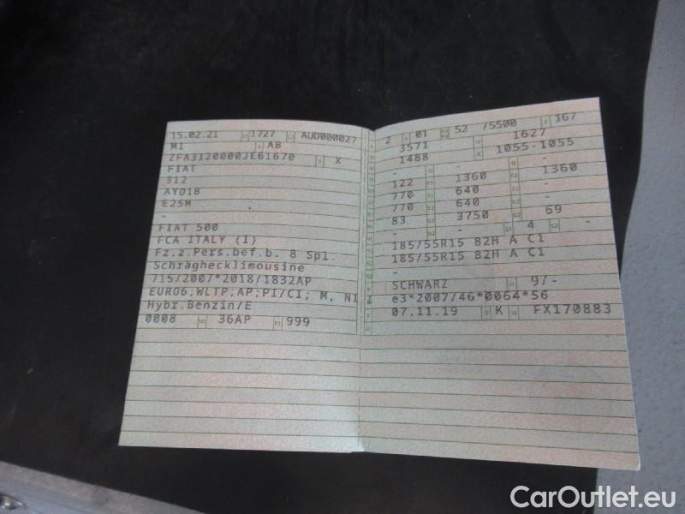 15.02.21 1727 AUD000027
M1 AB
ZFA3120000JE61670 X
FIAT
312
AYD1B
E25M
-
FIAT 500
FCA ITALY (I)
Fz.z.Pers.bef.b. 8 Spl.
Schräghecklimousine
715/2007*2018/1832AP
EURO6,WLTP,AP;PI/CI; M, N1 I
Hybr.Benzin/E
0008 36AP 999
2 01 52 /5500 167
3571 1627
1488 1055-1055
- - -
122 1360 1360
770 640 -
770 640 -
83 3750 69
- - 4 -
185/55R15 82H A C1
185/55R15 82H A C1
-
SCHWARZ 9/-
e3*2007/46*0064*56
07.11.19 K FX170883
CarOutlet.eu